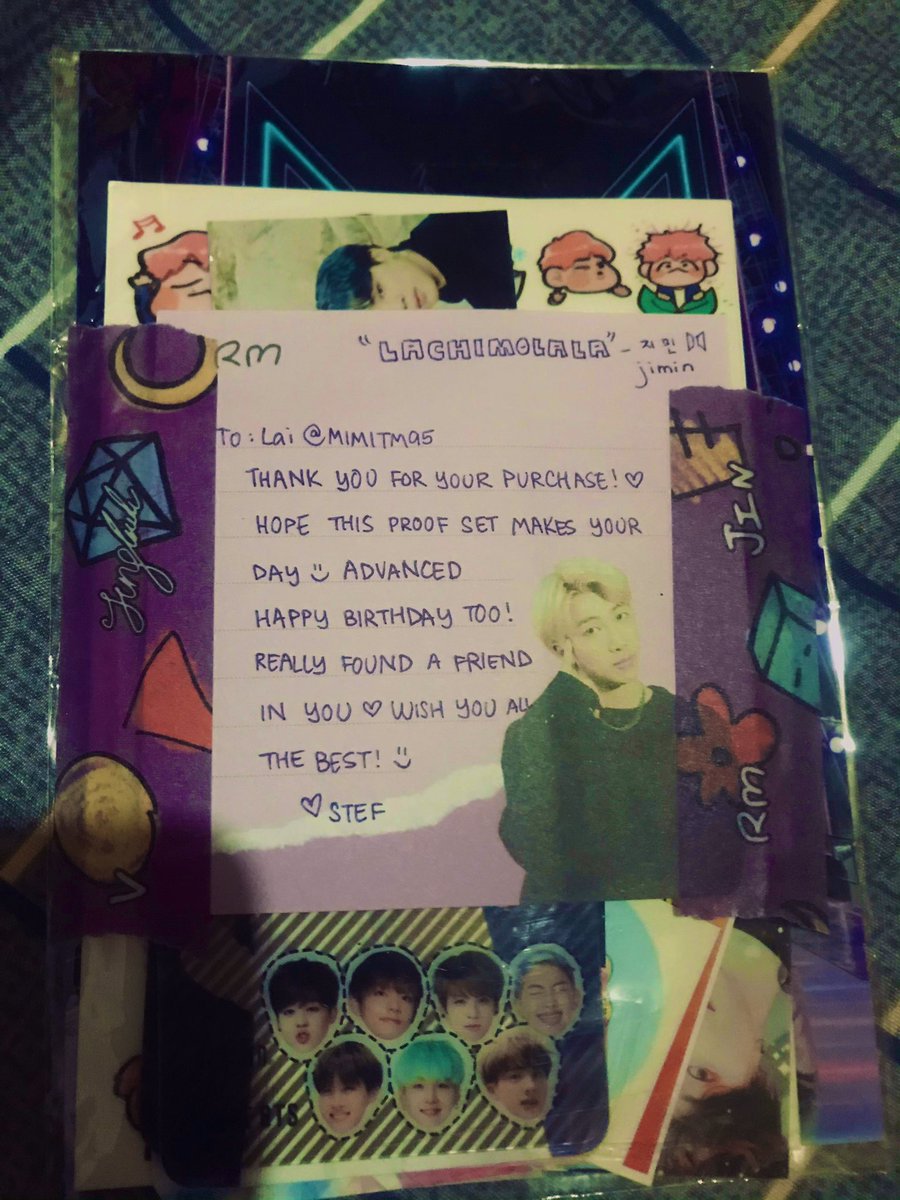 RM
"LACHIMOLALA" - 지민
jimin
TO: Lai @MIMITM95
THANK YOU FOR YOUR PURCHASE! ♡
HOPE THIS PROOF SET MAKES YOUR
DAY ADVANCED
HAPPY BIRTHDAY TOO!
REALLY FOUND A FRIEND
IN YOU ♡ WISH YOU ALL
THE BEST!
♡ STEF
V
JIN
RM
BTS